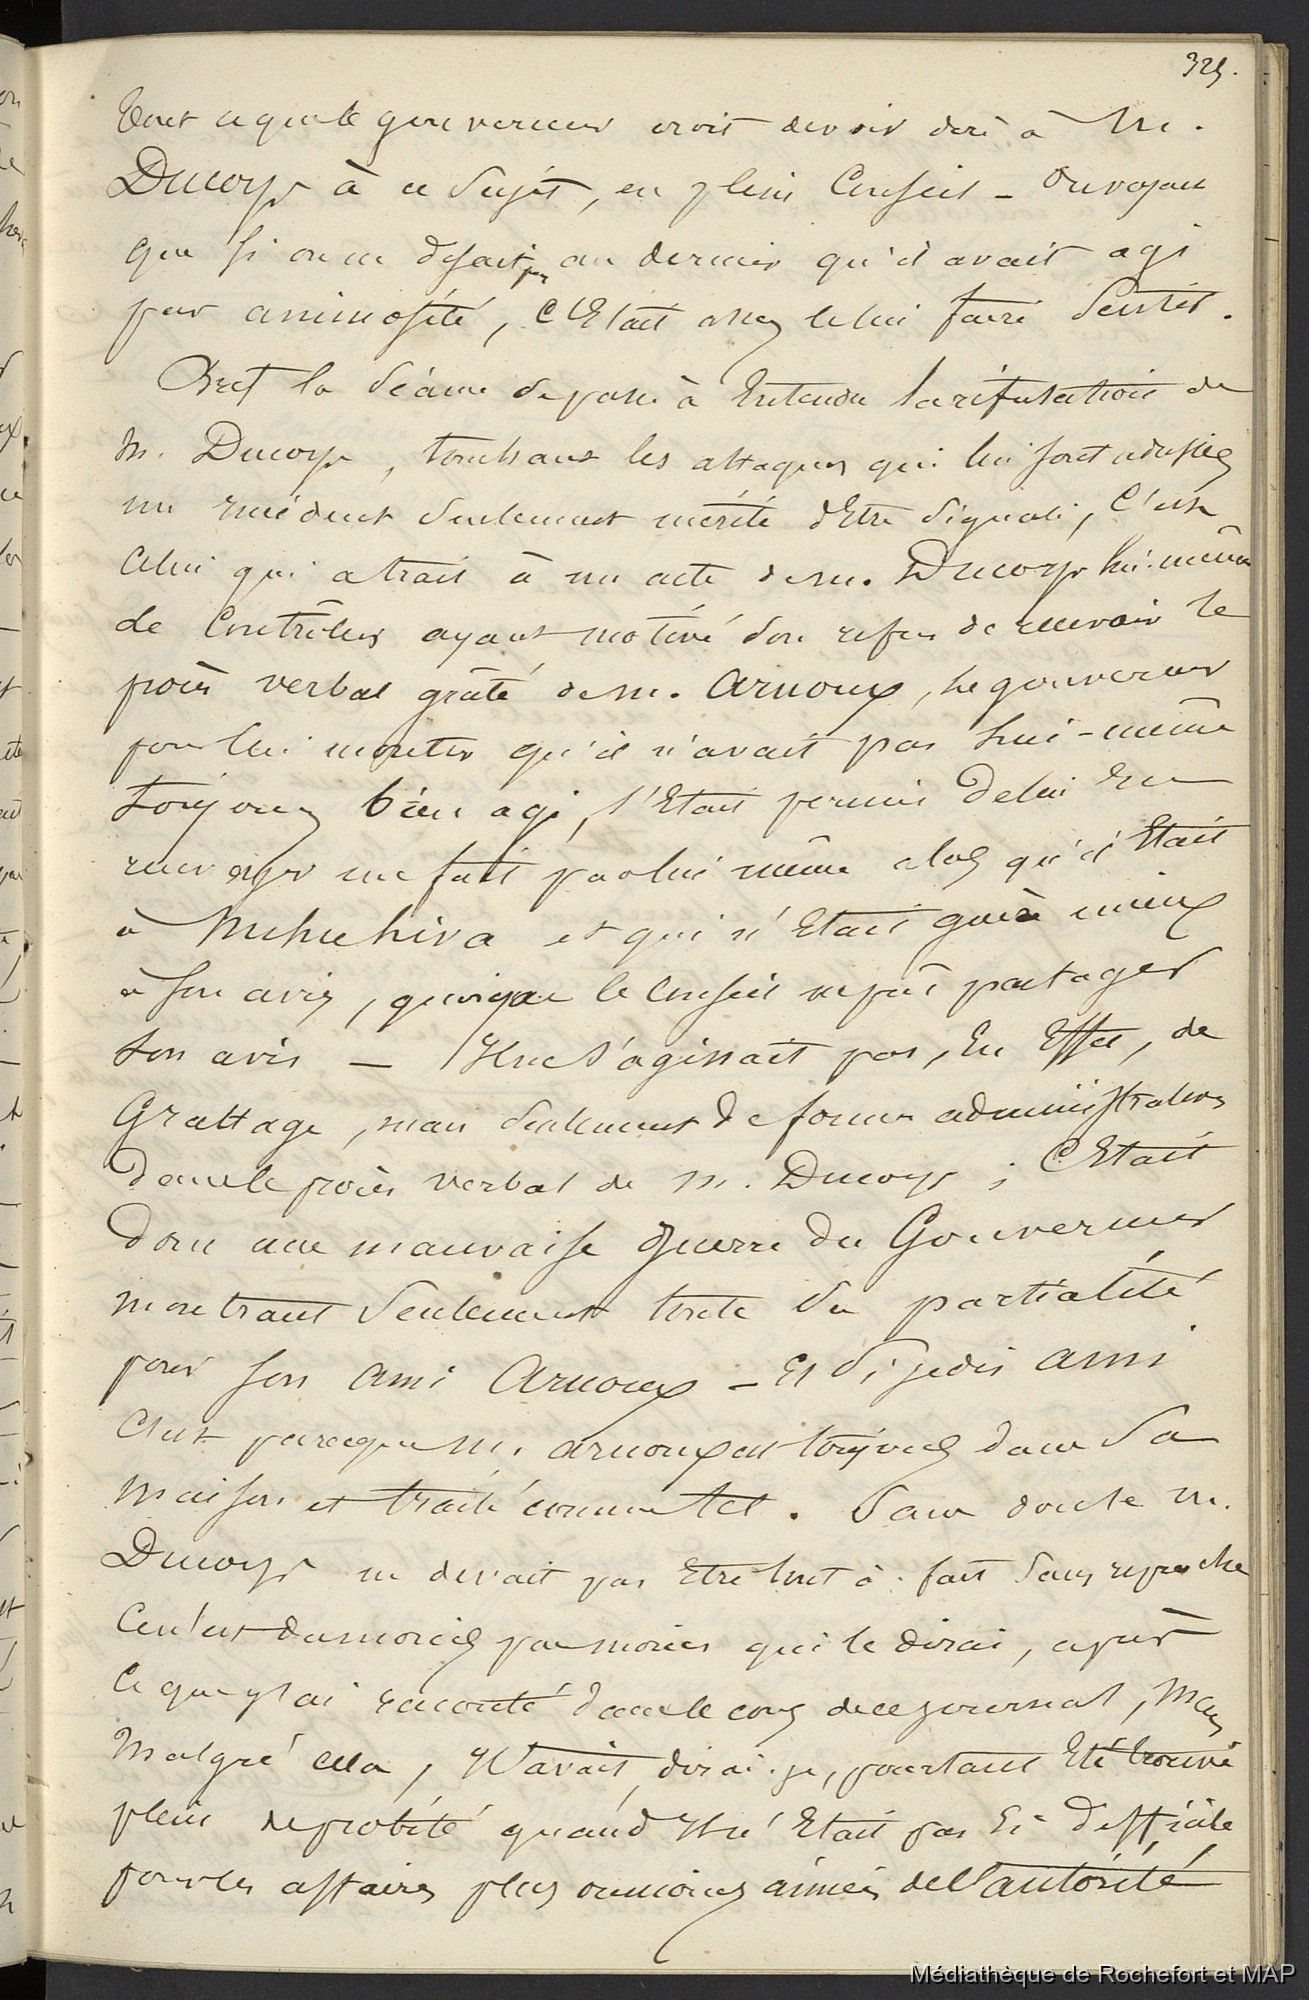 325.
tout ce que le gouverneur croit devoir dire à M.
Ducorps à ce sujet, en plein Conseil - on voyait
que si on ne disait pas au dernier qu'il avait agi
par animosité, C'Etait assez le lui faire sentir.
Bref la séance se passe à Entendre la réfutation de
M. Ducorps, touchant les attaques qui lui sont adressées
un incident seulement mérité d'Etre signalé, C'est
Celui qui a trait à un acte de m. Ducorps lui-même
Le Contrôleur ayant motivé son refus de recevoir le
procès verbal graté de m. Arnoux, le gouverneur
pour lui montrer qu'il n'avait pas lui-même
toujours bien agi, s'Etait permis de lui En
renvoyer un fait par lui même alors qu'il Etait
à Nuhuhiva et qui n'Etait guère mieux
à son avis, quoique le Conseil ne put partager
son avis — Il ne s'agissait pas, En Effet, de
Grattage, mais seulement de formes administratives
dans le procès verbal de m. Ducorps ; C'Etait
donc une mauvaise guerre du Gouverneur
montrant seulement toute sa partialité
pour son ami Arnoux - Et si je dis ami
C'est parceque m. arnoux est toujours dans sa
maison et traité comme tel. Sans doute m.
Ducorps ne devait pas Etre tout à fait sans reproche
Ce n'est du moins pas moi qui le dirai, après
Ce que j'ai raconté dans le cours de ce journal, Mais
Malgré cela, Il avait, dirai-je, pourtant Eté trouvé
plein de probité quand Il n'Etait pas si difficile
pour les affaires plus ou moins aimées de l'autorité
Médiathèque de Rochefort et MAP